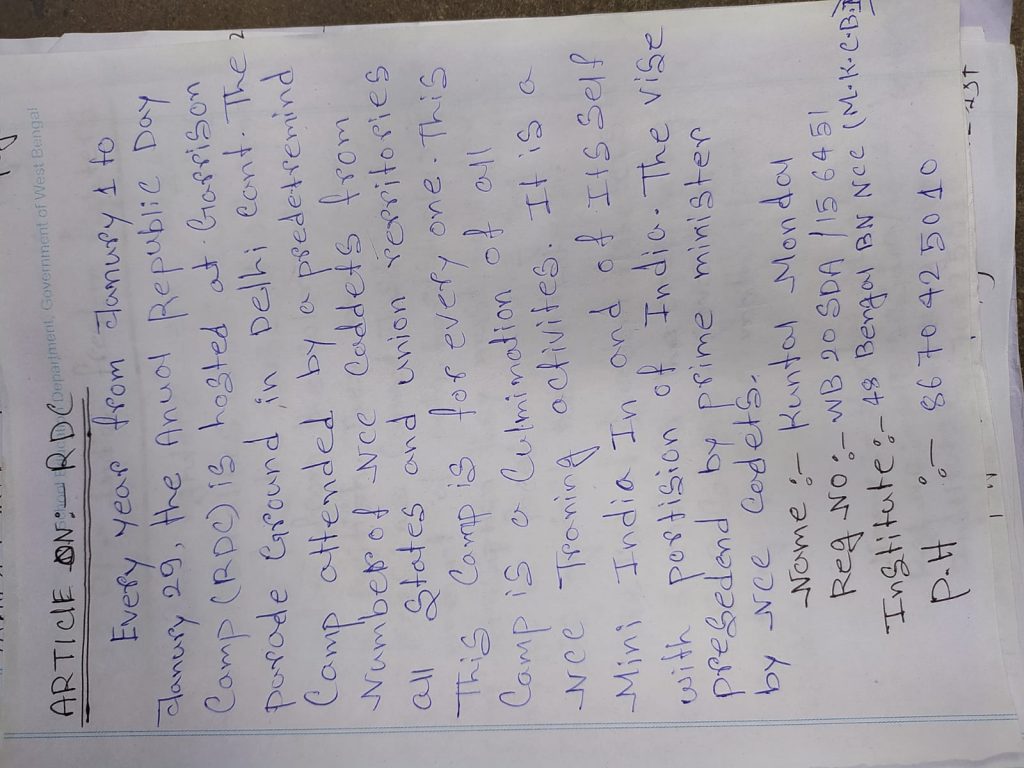 Department, Government of West Bengal
ARTICIE ON: RDC
Every year from Janury 1 to
Janury 29, the Anual Republic Day
Camp (RDC) is hosted at Garrison
parade Ground in Delhi Cant. The
Camp attended by a predetremind
Number of NCC Caddets from
all states and union rerritories
This Camp is for every one. This
Camp is a Culmination of all
NCC Traning activites. It is a
Mini India In and of Itsself
with portision of India. The vise
presedend by prime minister
by NCC Cadets.
Name :- Kuntal Mondal
Reg NO :- WB20SDA/156451
Institute :- 48 Bengal BN NCC (M.K.C.B.I
P.H :- 8670425010